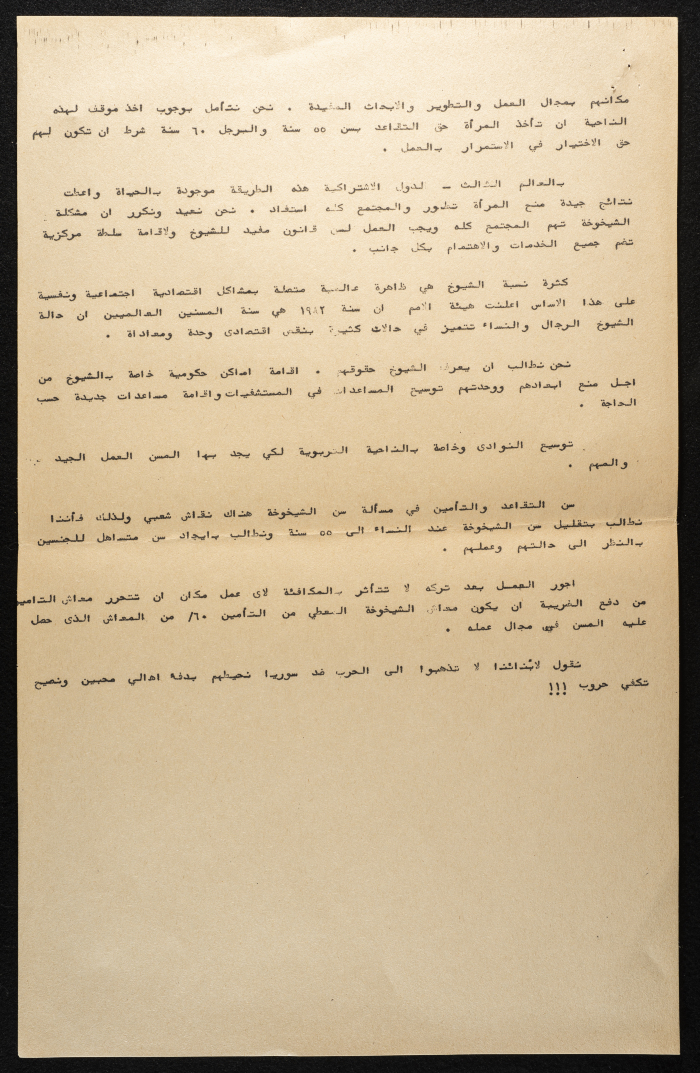 مكانهم بمجال العمل والتطوير والابحاث المفيدة . نحن نتأمل بوجوب اخذ موقف لهذه
الناحية ان تأخذ المرأة حق التقاعد بسن ٥٥ سنة والرجل ٦٠ سنة شرط ان تكون لهم
حق الاختيار في الاستمرار بالعمل .
بالعالم الثالث - لدول الاشتراكية هذه الطريقة موجودة بالحياة واعطت
نتائج جيدة منع المرأة تطور والمجتمع كله استفاد . نحن نعيد ونكرر ان مشكلة
الشيخوخة تهم المجتمع كله ويجب العمل لسن قانون مفيد للشيوخ ولاقامة سلطة مركزية
تضم جميع الخدمات والاهتمام بكل جانب .
كثرة نسبة الشيوخ هي ظاهرة عالمية متصلة بمشاكل اقتصادية اجتماعية ونفسية
على هذا الاساس اعلنت هيئة الامم ان سنة ١٩٨٢ هي سنة المسنين العالميين ان حالة
الشيوخ الرجال والنساء تتميز في حالات كثيرة بنقص اقتصادى وحدة ومعاداة .
نحن نطالب ان يعرف الشيوخ حقوقهم . اقامة اماكن حكومية خاصة بالشيوخ من
اجل منع ابعادهم ووحدتهم توسيع المساعدات في المستشفيات واقامة مساعدات جديدة حسب
الحاجة .
توسيع النوادى وخاصة بالناحية التربوية لكي يجد بها المسن العمل الجيد
والمهم .
سن التقاعد والتأمين في مسألة سن الشيخوخة هناك نقاش شعبي ولذلك فأننا
نطالب بتقليل سن الشيخوخة عند النساء الى ٥٥ سنة ونطالب بايجاد سن متساهل للجنسين
بالنظر الى حالتهم وعملهم .
اجور العمل بعد تركه لا تتأثر بالمكافئة لاى عمل مكان ان تتحرر معاش التامين
من دفع الضريبة ان يكون معاش الشيخوخة المعطي من التأمين ٦٠/ من المعاش الذى حصل
عليه المسن في مجال عمله .
نقول لابنائنا لا تذهبوا الى الحرب ضد سوريا نحيطهم بدفء اهالي محبين ونصيح
تكفي حروب !!!